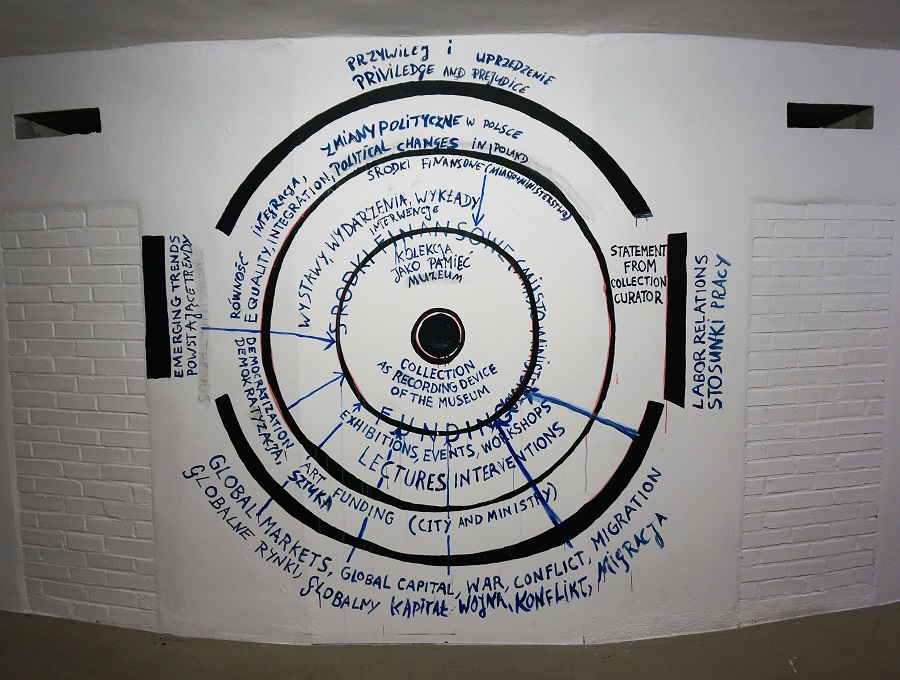 PRZYWILEJ i UPRZEDZENIE
PRIVILEDGE AND PREJUDICE
ZMIANY POLITYCZNE W POLSCE
POLITICAL CHANGES IN POLAND
RÓWNOŚĆ INTEGRACJA,
EQUALITY, INTEGRATION,
ŚRODKI FINANSOWE (MIASTO MINISTERSTWO)
WYSTAWY, WYDARZENIA, WYKŁADY
INTERWENCJE
ŚRODKI FINANSOWE (MIASTO MINIST
KOLEKCJA
JAKO PAMIĘĆ
MUZEUM
STATEMENT
FROM
COLLECTION
CURATOR
EMERGING TRENDS
POWSTAJĄCE TRENDY
LABOR RELATIONS
STOSUNKI PRACY
COLLECTION
AS RECORDING DEVICE
OF THE MUSEUM
FUNDING
EXHIBITIONS, EVENTS, WORKSHOPS
LECTURES INTERVENTIONS
DEMOCRATIZATION,
DEMOKRATYZACJA,
ART FUNDING (CITY AND MINISTRY)
SZTUKA
GLOBAL MARKETS, GLOBAL CAPITAL, WAR, CONFLICT, MIGRATION
GLOBALNE RYNKI, GLOBALNY KAPITAŁ WOJNA, KONFLIKT, MIGRACJA